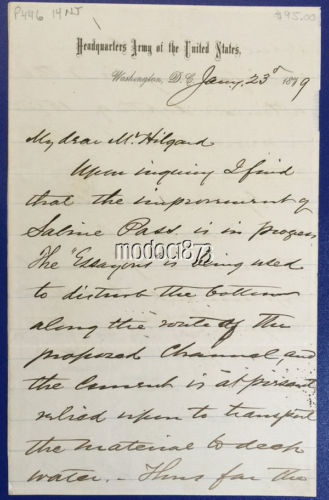 P446 14 NJ
$95.00
Headquarters Army of the United States,
Washington, D.C. Jany. 23d 1879
My dear Mr Hilgard
Upon inquiry I find
that the improvement of
Sabine Pass is in progress
The "Essayons" is being used
modoc1873
to disturb the bottom
along the route of the
proposed Channel, and
the Current is at present
relied upon to transport
the material to deep
water. - Thus far the